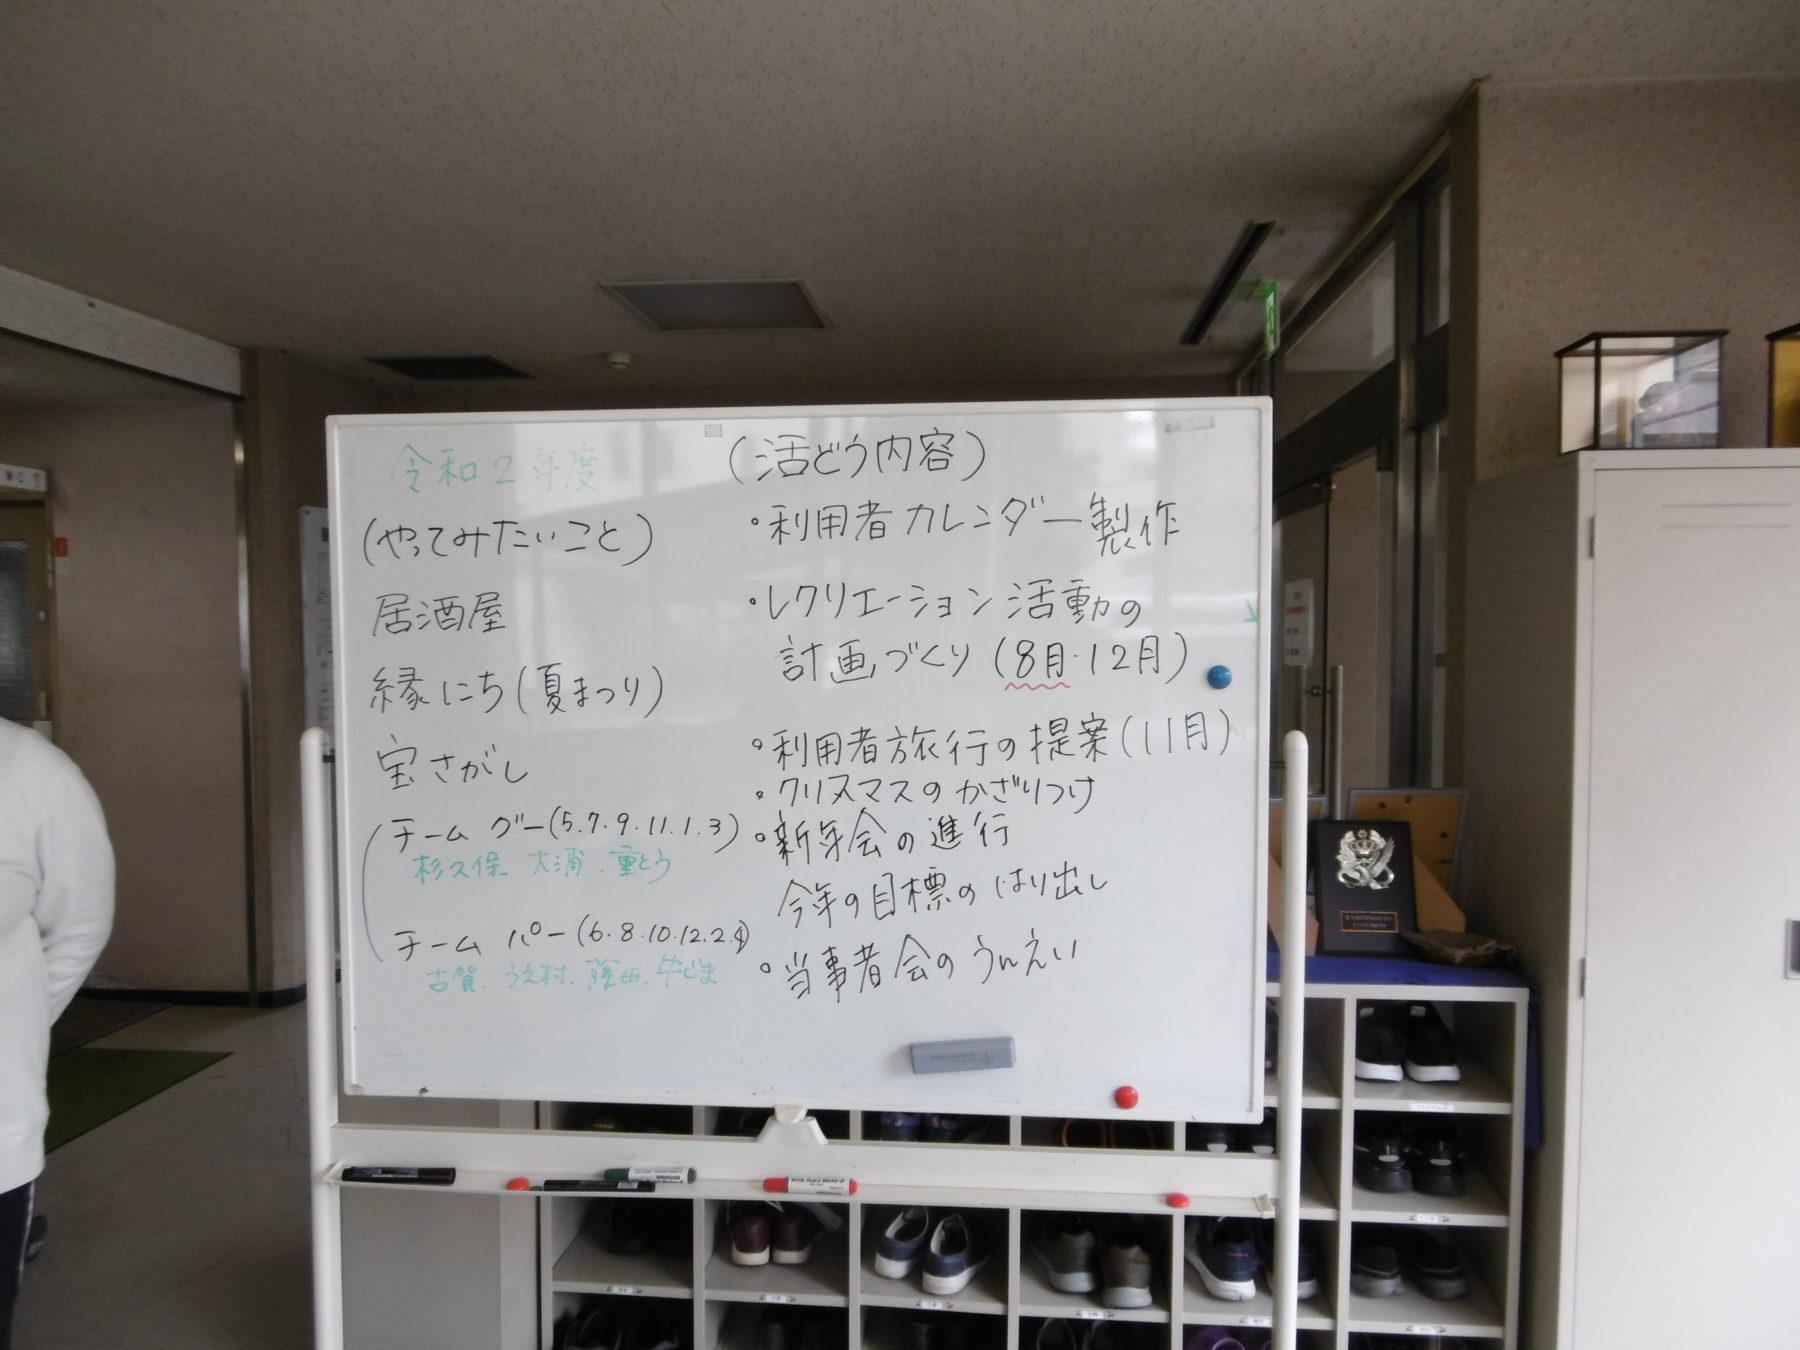 令和2年度
(やってみたいこと)
居酒屋
縁にち(夏まつり)
宝さがし
チーム グー(5.7.9.11.1.3)
杉久保 大浦.重とう
チーム パー(6.8.10.12.2.4)
古賀.うえ村.藤田.牛じま
(活どう内容)
・利用者カレンダー製作
・レクリエーション活動の
計画づくり(8月・12月)
・利用者旅行の提案(11月)
・クリスマスのかざりつけ
・新年会の進行
今年の目標のはり出し
・当事者会のうんえい